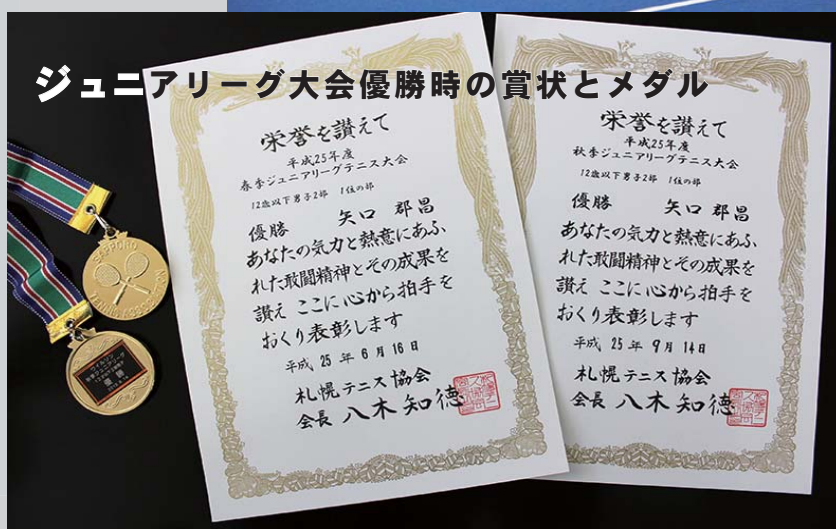 ジュニアリーグ大会優勝時の賞状とメダル
栄誉を讃えて
平成25年度
春季ジュニアリーグテニス大会
12歳以下男子2部 1位の部
優勝 矢口 郡昌
あなたの気力と熱意にあふ
れた敢闘精神とその成果を
讃え ここに心から拍手を
おくり表彰します
平成 25 年 6 月 16 日
札幌テニス協会
会長 八木知徳
栄誉を讃えて
平成25年度
秋季ジュニアリーグテニス大会
12歳以下男子2部 1位の部
優勝 矢口 郡昌
あなたの気力と熱意にあふ
れた敢闘精神とその成果を
讃え ここに心から拍手を
おくり表彰します
平成 25 年 9 月 14 日
札幌テニス協会
会長 八木知徳
SAPPORO
TENNIS ASSOCIATION
ウイルソン
秋季ジュニアリーグ
優勝